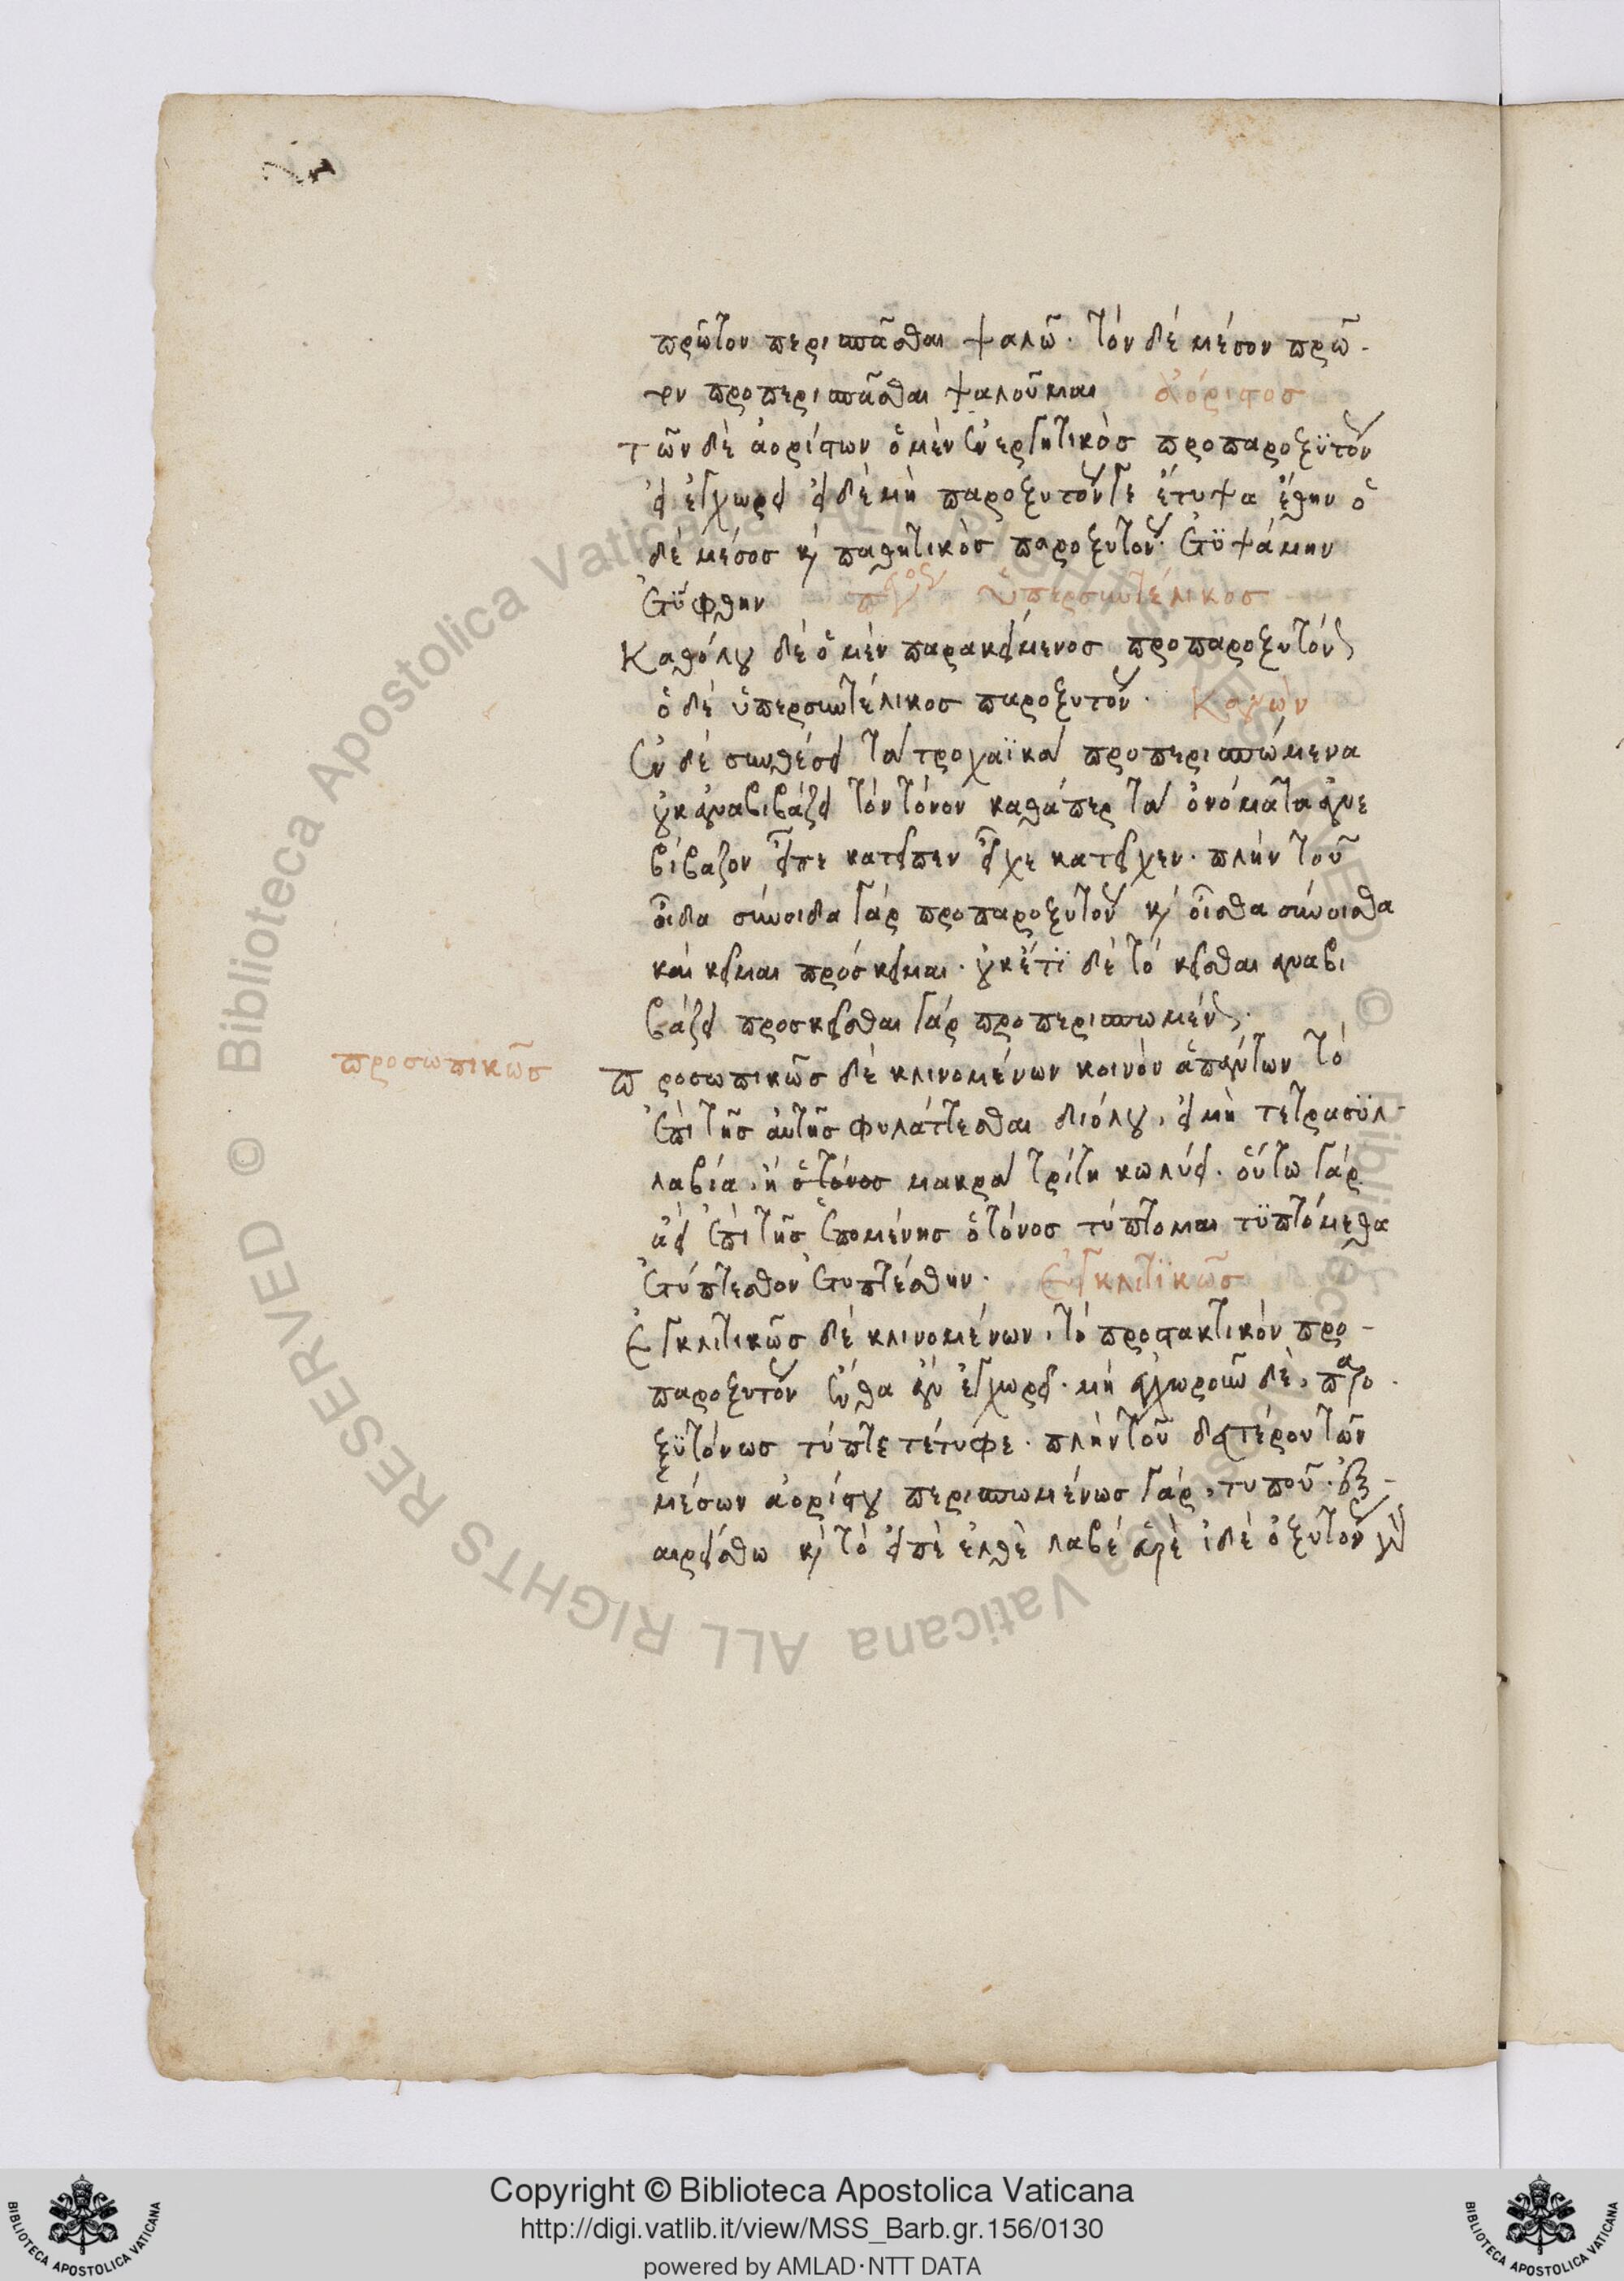 πρῶτον περισπᾶσθαι ψαλῶ. τὸν δὲ μέσον πρῶ-
τον προπερισπᾶσθαι ψαλοῦμαι ἀόριστος
τῶν δὲ ἀορίστων ὁ μὲν ἐνεργητικὸς προπαροξϋτόν
εἰ ἐγχωρεῖ εἰ δὲ μὴ παροξυτόν ἔτυψα ἔθην ὁ
δὲ μέσος κ παθητικὸς παροξυτόν. ἐτϋψάμην
ἐτΰφθην ὑπερσυντέλικος
Καθόλου δὲ ὁ μὲν παρακείμενος προπαροξυτόν
ὁ δὲ ὑπερσυντέλικος παροξυτόν. Κανὼν
Ἐν δὲ συνθέσει τὰ τροχαϊκὰ προπερισπώμενα
οὐκ ἀναβιβάζει τὸν τόνον καθάπερ τὰ ὀνόματα ἀνε
βίβαζον εἶπε κατεῖπεν εἶχε κατεῖχεν. πλὴν τοῦ
οἶδα σύνοιδα γὰρ προπαροξυτόν κ οἶσθα σύνοισθα
καὶ κεῖμαι πρόσκειμαι. οὐκέτϊ δὲ τὸ κεῖσθαι ἀναβι
βάζει προσκεῖσθαι γὰρ προπερισπωμέν.
προσωπικῶς
προσωπικῶς δὲ κλινομένων κοινὸν ἁπάντων τὸ
ἐπὶ τῆς αὐτῆς φυλάττεσθαι διόλου, εἰ μὴ τετρασϋλ-
λαβία, ἢ ὁ τόνος μακρὰ τρίτη κωλύει. οὕτω γὰρ
ἀεὶ ἐπὶ τῆς ἑπομένης ὁ τόνος τύπτομαι τϋπτόμεθα
ἐτύπτεσθον ἐτυπτέσθην. Ἐγκλιτϊκῶς
Ἐγκλιτικῶς δὲ κλινομένων, τὸ προστακτικὸν προ-
παροξυτόν ἔνθα ἂν ἐγχωρεῖ. μὴ ἐγχωροῦν δὲ, παρο
ξϋτόνως τύπτε τέτυφε. πλὴν τοῦ δευτέρου τῶν
μέσων ἀορίστου περισπωμένως γὰρ, τυποῦ. ἐξ-
αιρείσθω κ τὸ εἰπὲ ἐλθὲ λαβὲ εὑρὲ ἰδὲ ὀξυτόν
Copyright © Biblioteca Apostolica Vaticana
http://digi.vatlib.it/view/MSS_Barb.gr.156/0130
powered by AMLAD·NTT DATA
BIBLIOTECA APOSTOLICA VATICANA
BIBLIOTECA APOSTOLICA VATICANA
© Biblioteca Apostolica Vaticana ALL RIGHTS RESERVED
© Biblioteca Apostolica Vaticana ALL RIGHTS RESERVED